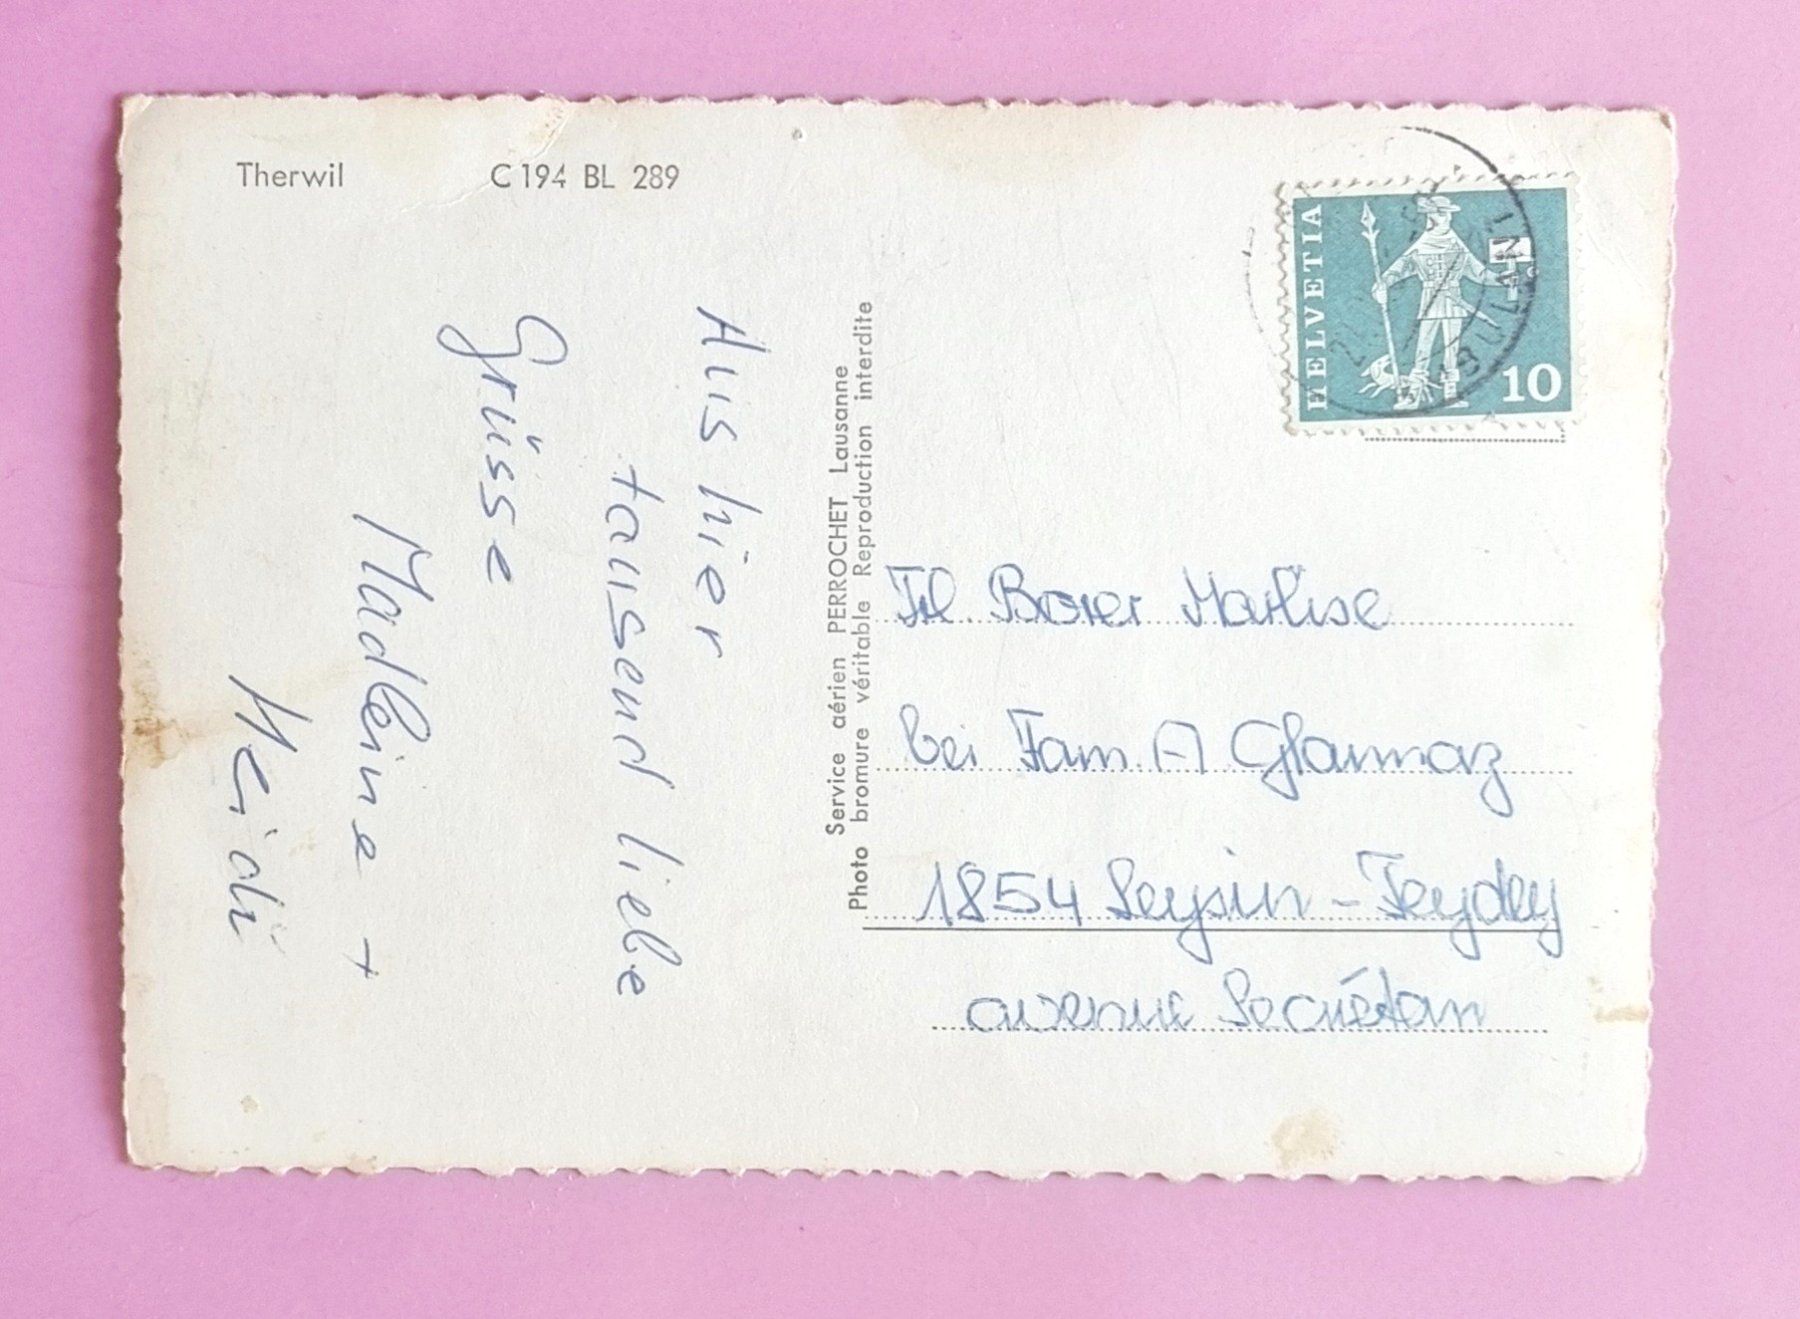 Therwil C 194 BL 289
Aus hier
tausend liebe
Grüsse
Madleine +
Heidi
Service aérien PERROCHET Lausanne
Photo bromure véritable Reproduction interdite
HELVETIA
10
AMBULANT
Frl. Borer Marlise
bei Fam. A
1854 Leysin - Feydey
avenue Secrétan